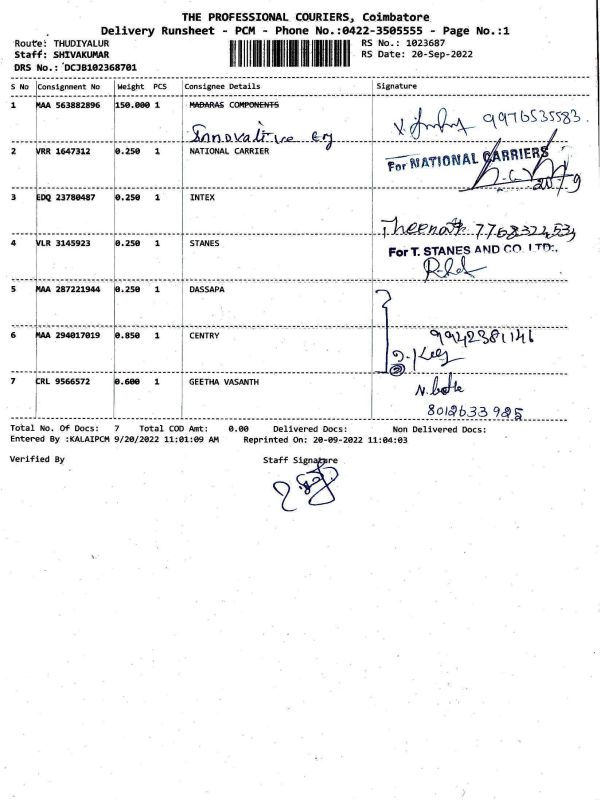 THE PROFESSIONAL COURIERS, Coimbatore
Delivery Runsheet - PCM - Phone No.:0422-3505555 - Page No.:1
Route: THUDIYALUR RS No.: 1023687
Staff: SHIVAKUMAR RS Date: 20-Sep-2022
DRS No.: DCJB102368701
S No Consignment No Weight PCS Consignee Details Signature
1 MAA 563882896 150.000 1 MADARAS COMPONENTS
Innovative 9976535583
2 VRR 1647312 0.250 1 NATIONAL CARRIER For NATIONAL CARRIERS
20.7.9
3 EDQ 23780487 0.250 1 INTEX
Theenath
4 VLR 3145923 0.250 1 STANES For T. STANES AND CO. LTD.,
5 MAA 287221944 0.250 1 DASSAPA
6 MAA 294017019 0.850 1 CENTRY 9942381146
7 CRL 9566572 0.600 1 GEETHA VASANTH
8012633985
Total No. Of Docs: 7 Total COD Amt: 0.00 Delivered Docs: Non Delivered Docs:
Entered By :KALAIPCM 9/20/2022 11:01:09 AM Reprinted On: 20-09-2022 11:04:03
Verified By Staff Signature